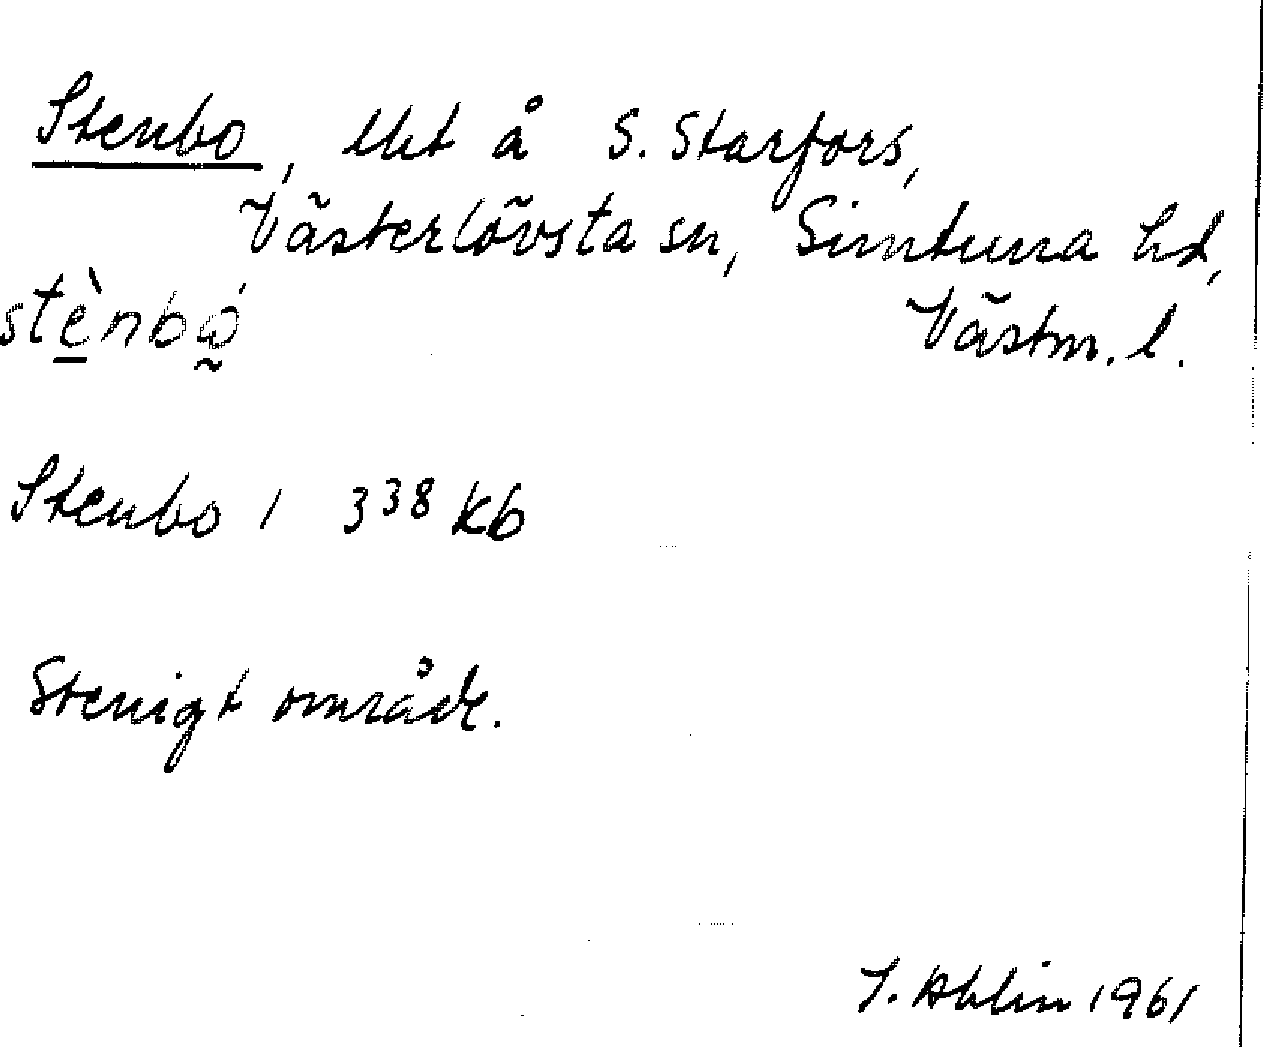 Stenbo, lht å S. Starfors,
Västerlövsta sn, Simtuna hd,
stè̱nbώ̰ Västm. l.
Stenbo 1 3³⁸ Kb
Stenigt område.
J. Ahlin 1961